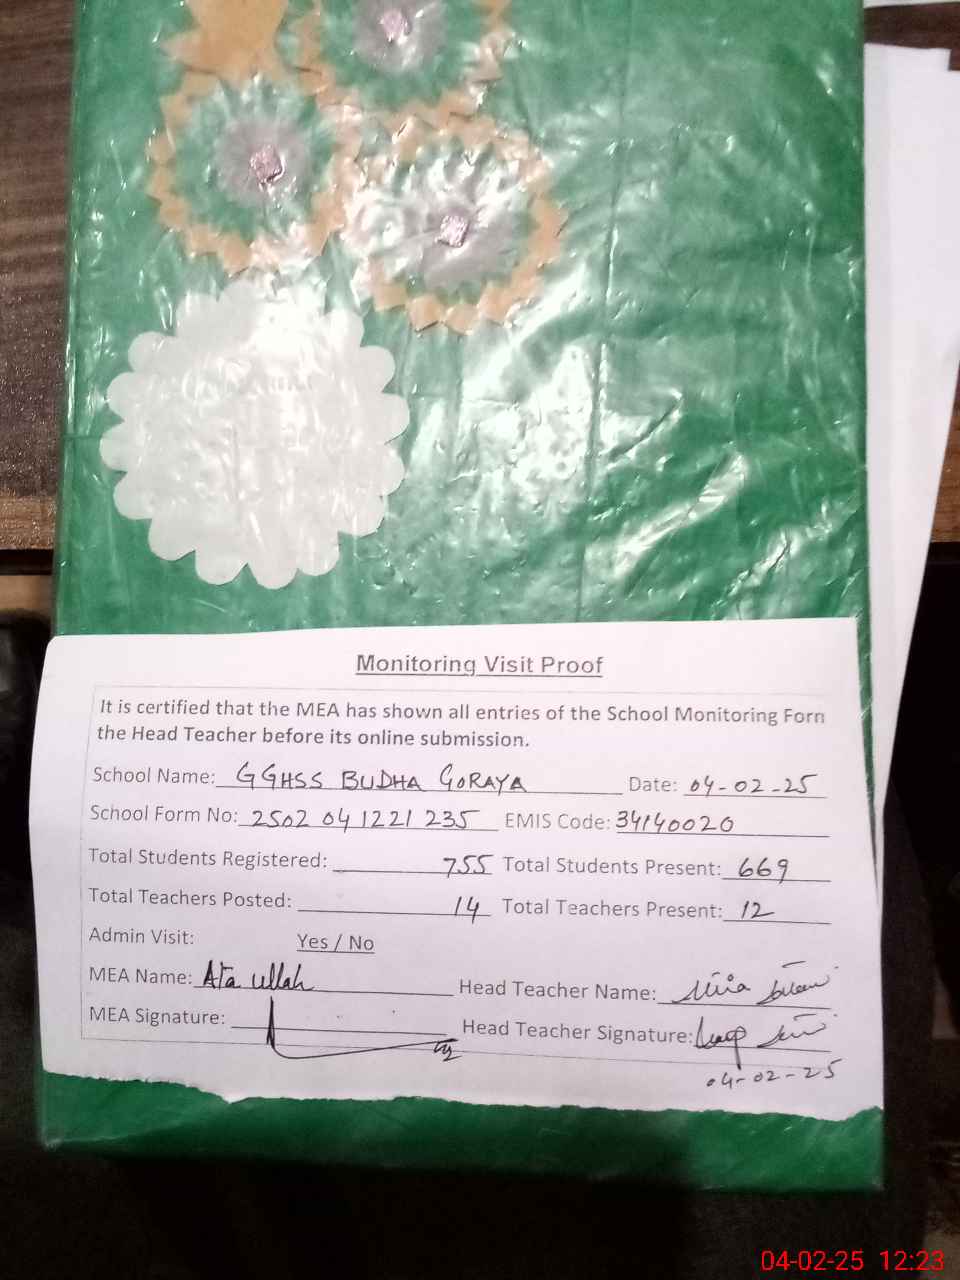 Monitoring Visit Proof
It is certified that the MEA has shown all entries of the School Monitoring Forn
the Head Teacher before its online submission.
School Name: GGHSS BUDHA GORAYA Date: 04-02-25
School Form No: 2502 04 1221 235 EMIS Code: 34140020
Total Students Registered: 755 Total Students Present: 669
Total Teachers Posted: 14 Total Teachers Present: 12
Admin Visit: Yes / No
MEA Name: Ata ullah Head Teacher Name:
MEA Signature: Head Teacher Signature:
04-02-25
04-02-25 12:23